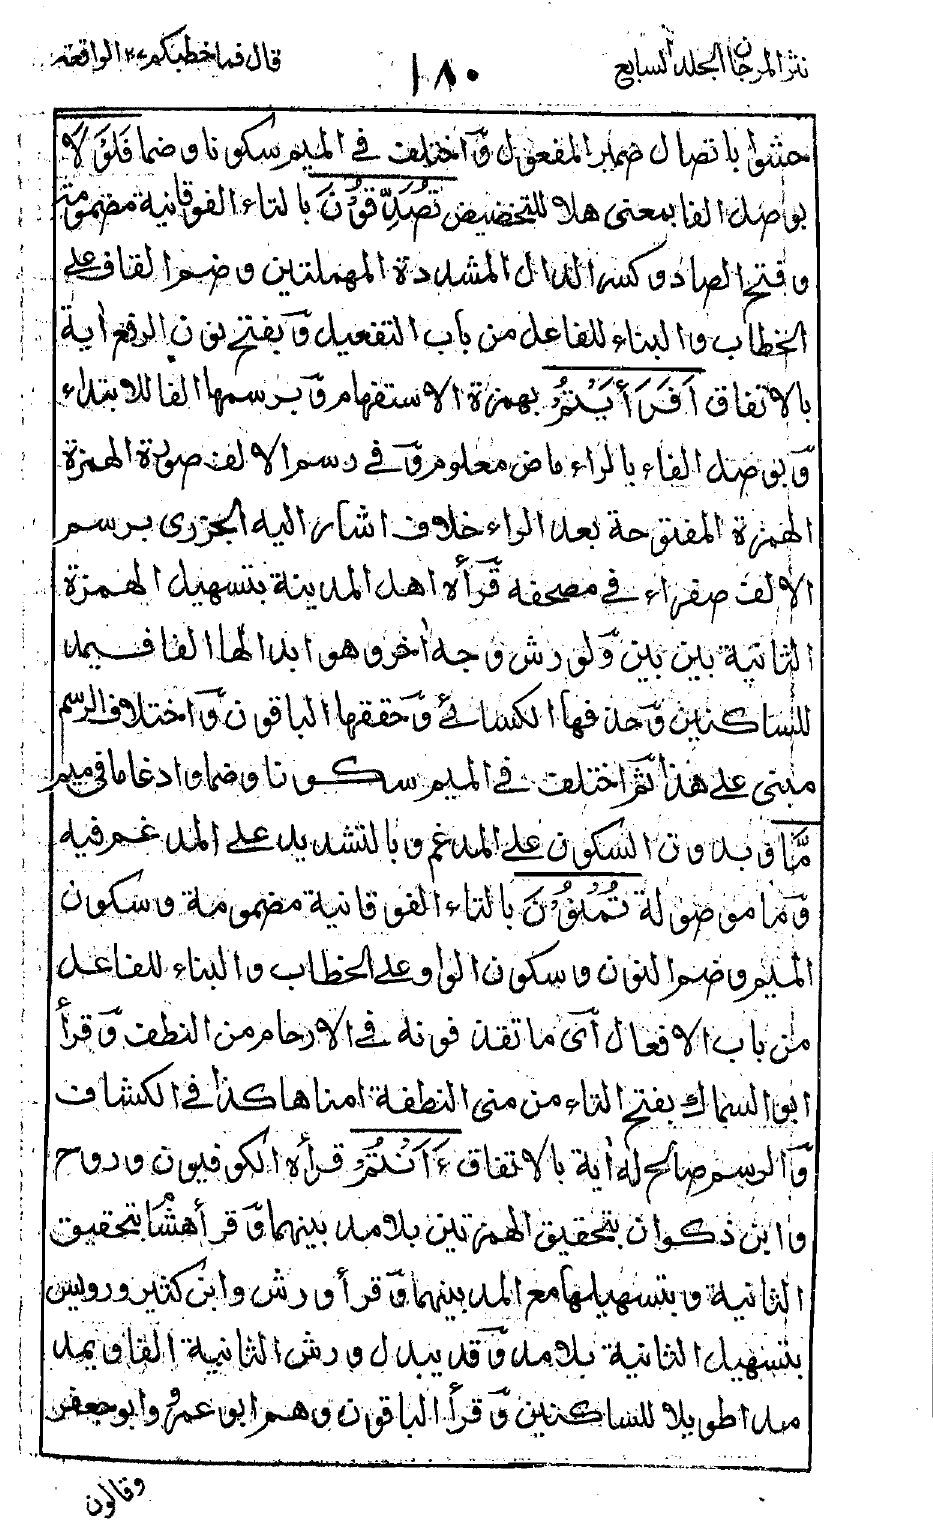 نثر المرجان الجلد السابع
١٨٠
قال فما خطبكم ٢٧ الواقعة
حشوا باتصال ضمير المفعول وَٓاختلف في الميم سكونا وضما فَلَوْلَا
بوصل الفا بمعنى هلا للتحضيض تُصَدِّقُوْنَ بالتاء الفوقانية مضمومة
وفتح الصاد وكسر الدال المشددة المهملتين وضم القاف على
الخطاب والبناء للفاعل من باب التفعيل وَٓبفتح نون الرفع اية
بالاتفاق اَفَرَاَيْتُمْ بهمزة الاستفهام وَٓبرسمها الفا للابتداء
وَٓبوصل الفاء بالراء ماض معلوم وَٓفي رسم الالف صورة الهمزة
الهمزة المفتوحة بعد الراء خلاف اشار اليه الجزرى برسم
الالف صفراء في مصحفه قَٓرأه اهل المدينة بتسهيل الهمزة
الثانية بين بين وَٓلورش وجه اٰخر وهو ابدالها الفا فيمد
للساكنين وَٓحذفها الكسائي وَٓحققها الباقون وَٓاختلاف الرسم
مبنى على هذا ثَٓم اختلف في الميم سكونا وضما وادغاما في ميم
مَّا وبدون السكون على المدغم وبالتشديد على المدغم فيه
وَٓما موصولة تُمْنُوْنَ بالتاء الفوقانية مضمومة وسكون
الميم وضم النون وسكون الواو على الخطاب والبناء للفاعل
من باب الافعال آَى ما تقذفونه في الارحام من النطف وَٓقرأ
ابو السماك بفتح التاء من منى النطفة امناها كذا في الكشاف
وَٓالرسم صالح له اٰية بالاتفاق ءَاَنْتُمْ قرأه الكوفيون وروح
وابن ذكوان بتحقيق الهمزتين بلا مد بينهما وَٓقرأ هشام بتحقيق
الثانية وبتسهيلها مع المد بينهما وَٓقرأ ورش وابن كثير ورويس
بتسهيل الثانية بلا مد وَٓقد يبدل ورش الثانية الفا ويمد
مدا طويلا للساكنين وَٓقرأ الباقون وهم ابو عمرو وابو جعفر
وقالون